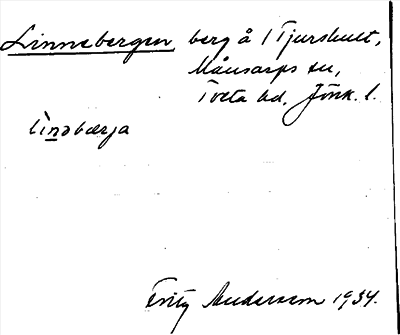 Linnebergen berg å 1 Tjurshult,
Månsarps sn,
Tveta hd, Jönk. l.
linnbærja
Fritz Andersson 1934.